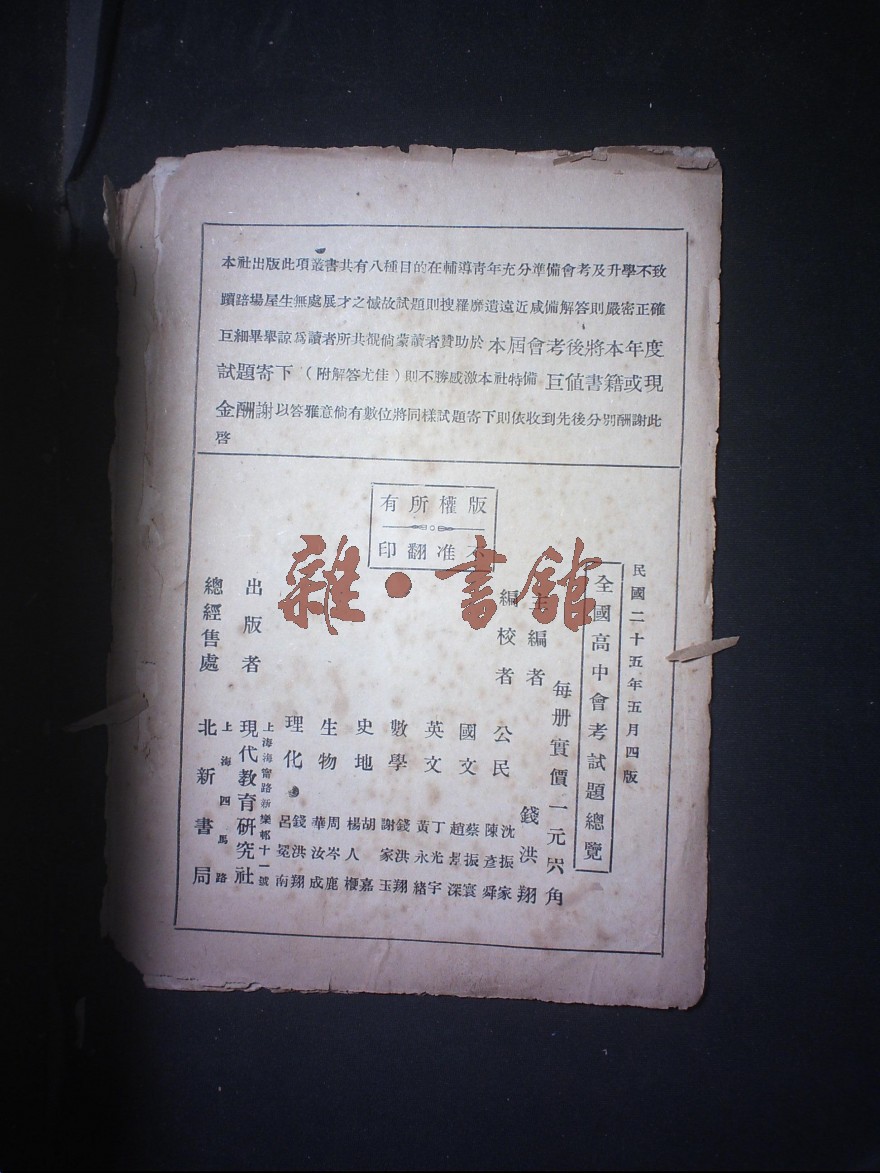 本社出版此項叢書共有八種目的在輔導青年充分準備會考及升學不致
躓踣場屋生無處展才之憾故試題則搜羅靡遺遠近咸備解答則嚴密正確
巨細畢舉諒爲讀者所共覩倘蒙讀者贊助於本屆會考後將本年度
試題寄下(附解答尤佳)則不勝感激本社特備巨值書籍或現
金酬謝以答雅意倘有數位將同樣試題寄下則依收到先後分別酬謝此
啓
版權所有
不准翻印
民國二十五年五月四版
全國高中會考試題總覽
每册實價一元六角
主編者 錢洪翔
編校者
公民 沈振家 陳彥舜
國文 蔡振寰 趙深
英文 丁光宇 黃永緒
數學 錢洪翔 謝家玉
史地 胡嘉 楊人楩
生物 周岑鹿 華汝成
理化 錢洪翔 呂冕南
出版者 現代教育研究社
上海海甯路新樂邨十一號
總經售處 北新書局
上海四馬路
雜·書館